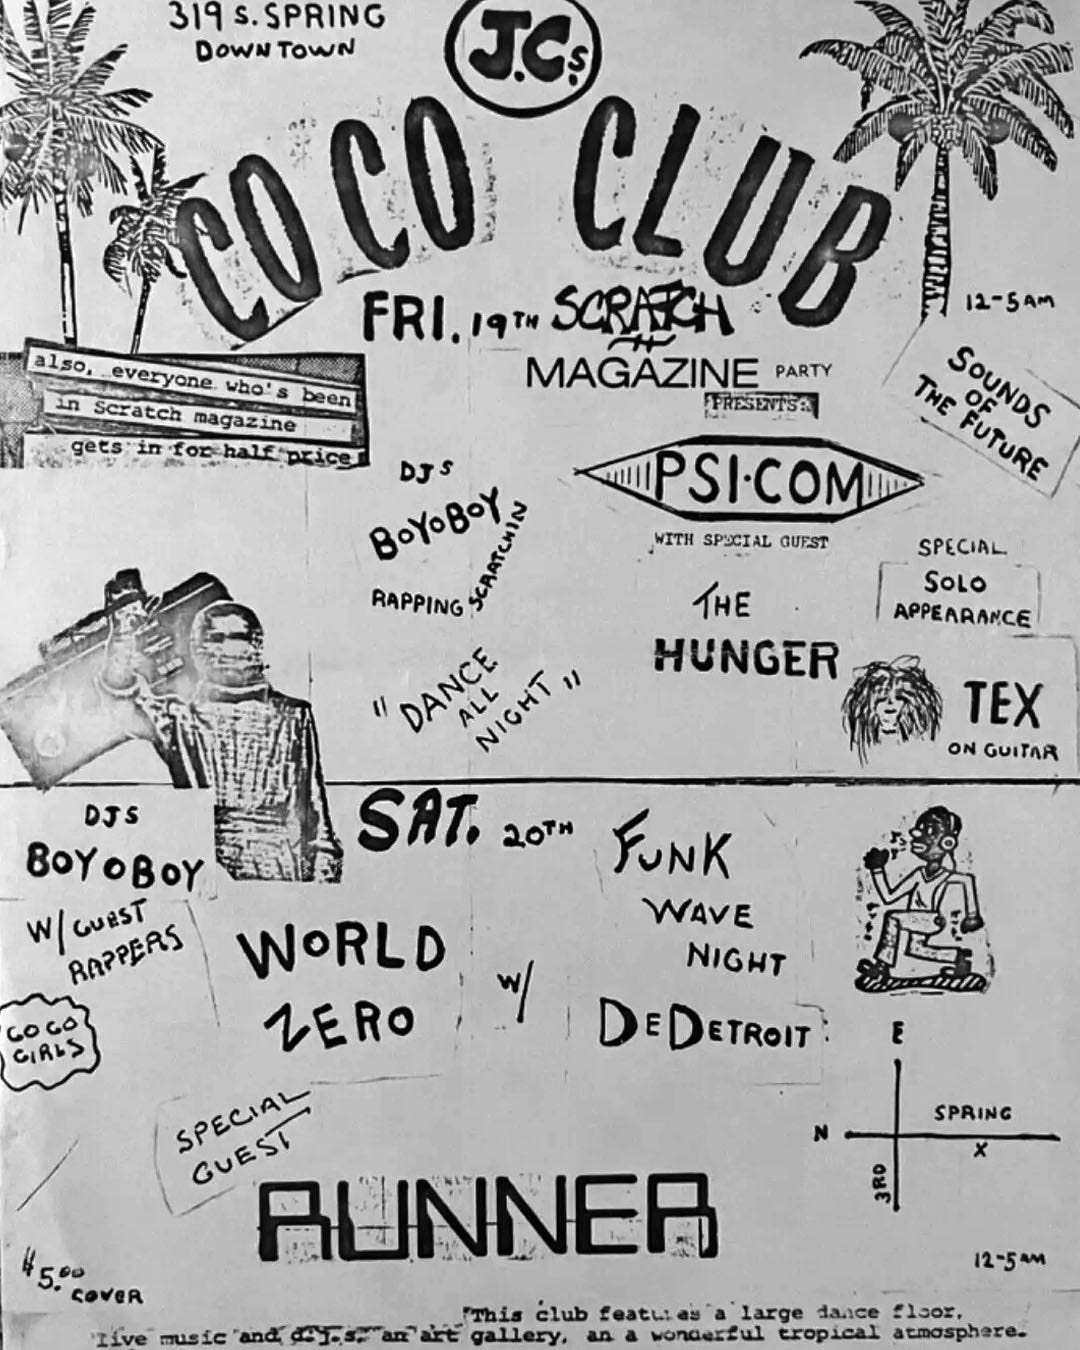 319 S. SPRING
DOWNTOWN
J.C.s.
COCO CLUB
FRI. 19TH SCRATCH
MAGAZINE PARTY
PRESENTS:
12-5 AM
SOUNDS
OF
THE FUTURE
also, everyone who's been
in Scratch magazine
gets in for half price
PSI·COM
WITH SPECIAL GUEST
THE
HUNGER
DJS
BOYOBOY
RAPPING SCRATCHIN
"DANCE
ALL
NIGHT"
SPECIAL
SOLO
APPEARANCE
TEX
ON GUITAR
SAT. 20TH
FUNK
WAVE
NIGHT
DJS
BOYOBOY
W/ GUEST
RAPPERS
GO GO
GIRLS
WORLD
ZERO
W/
DEDETROIT
E
N
SPRING
X
3RD
SPECIAL
GUEST
RUNNER
$5.00
COVER
12-5 AM
"This club features a large dance floor,
live music and d.j.s, an art gallery, an a wonderful tropical atmosphere.